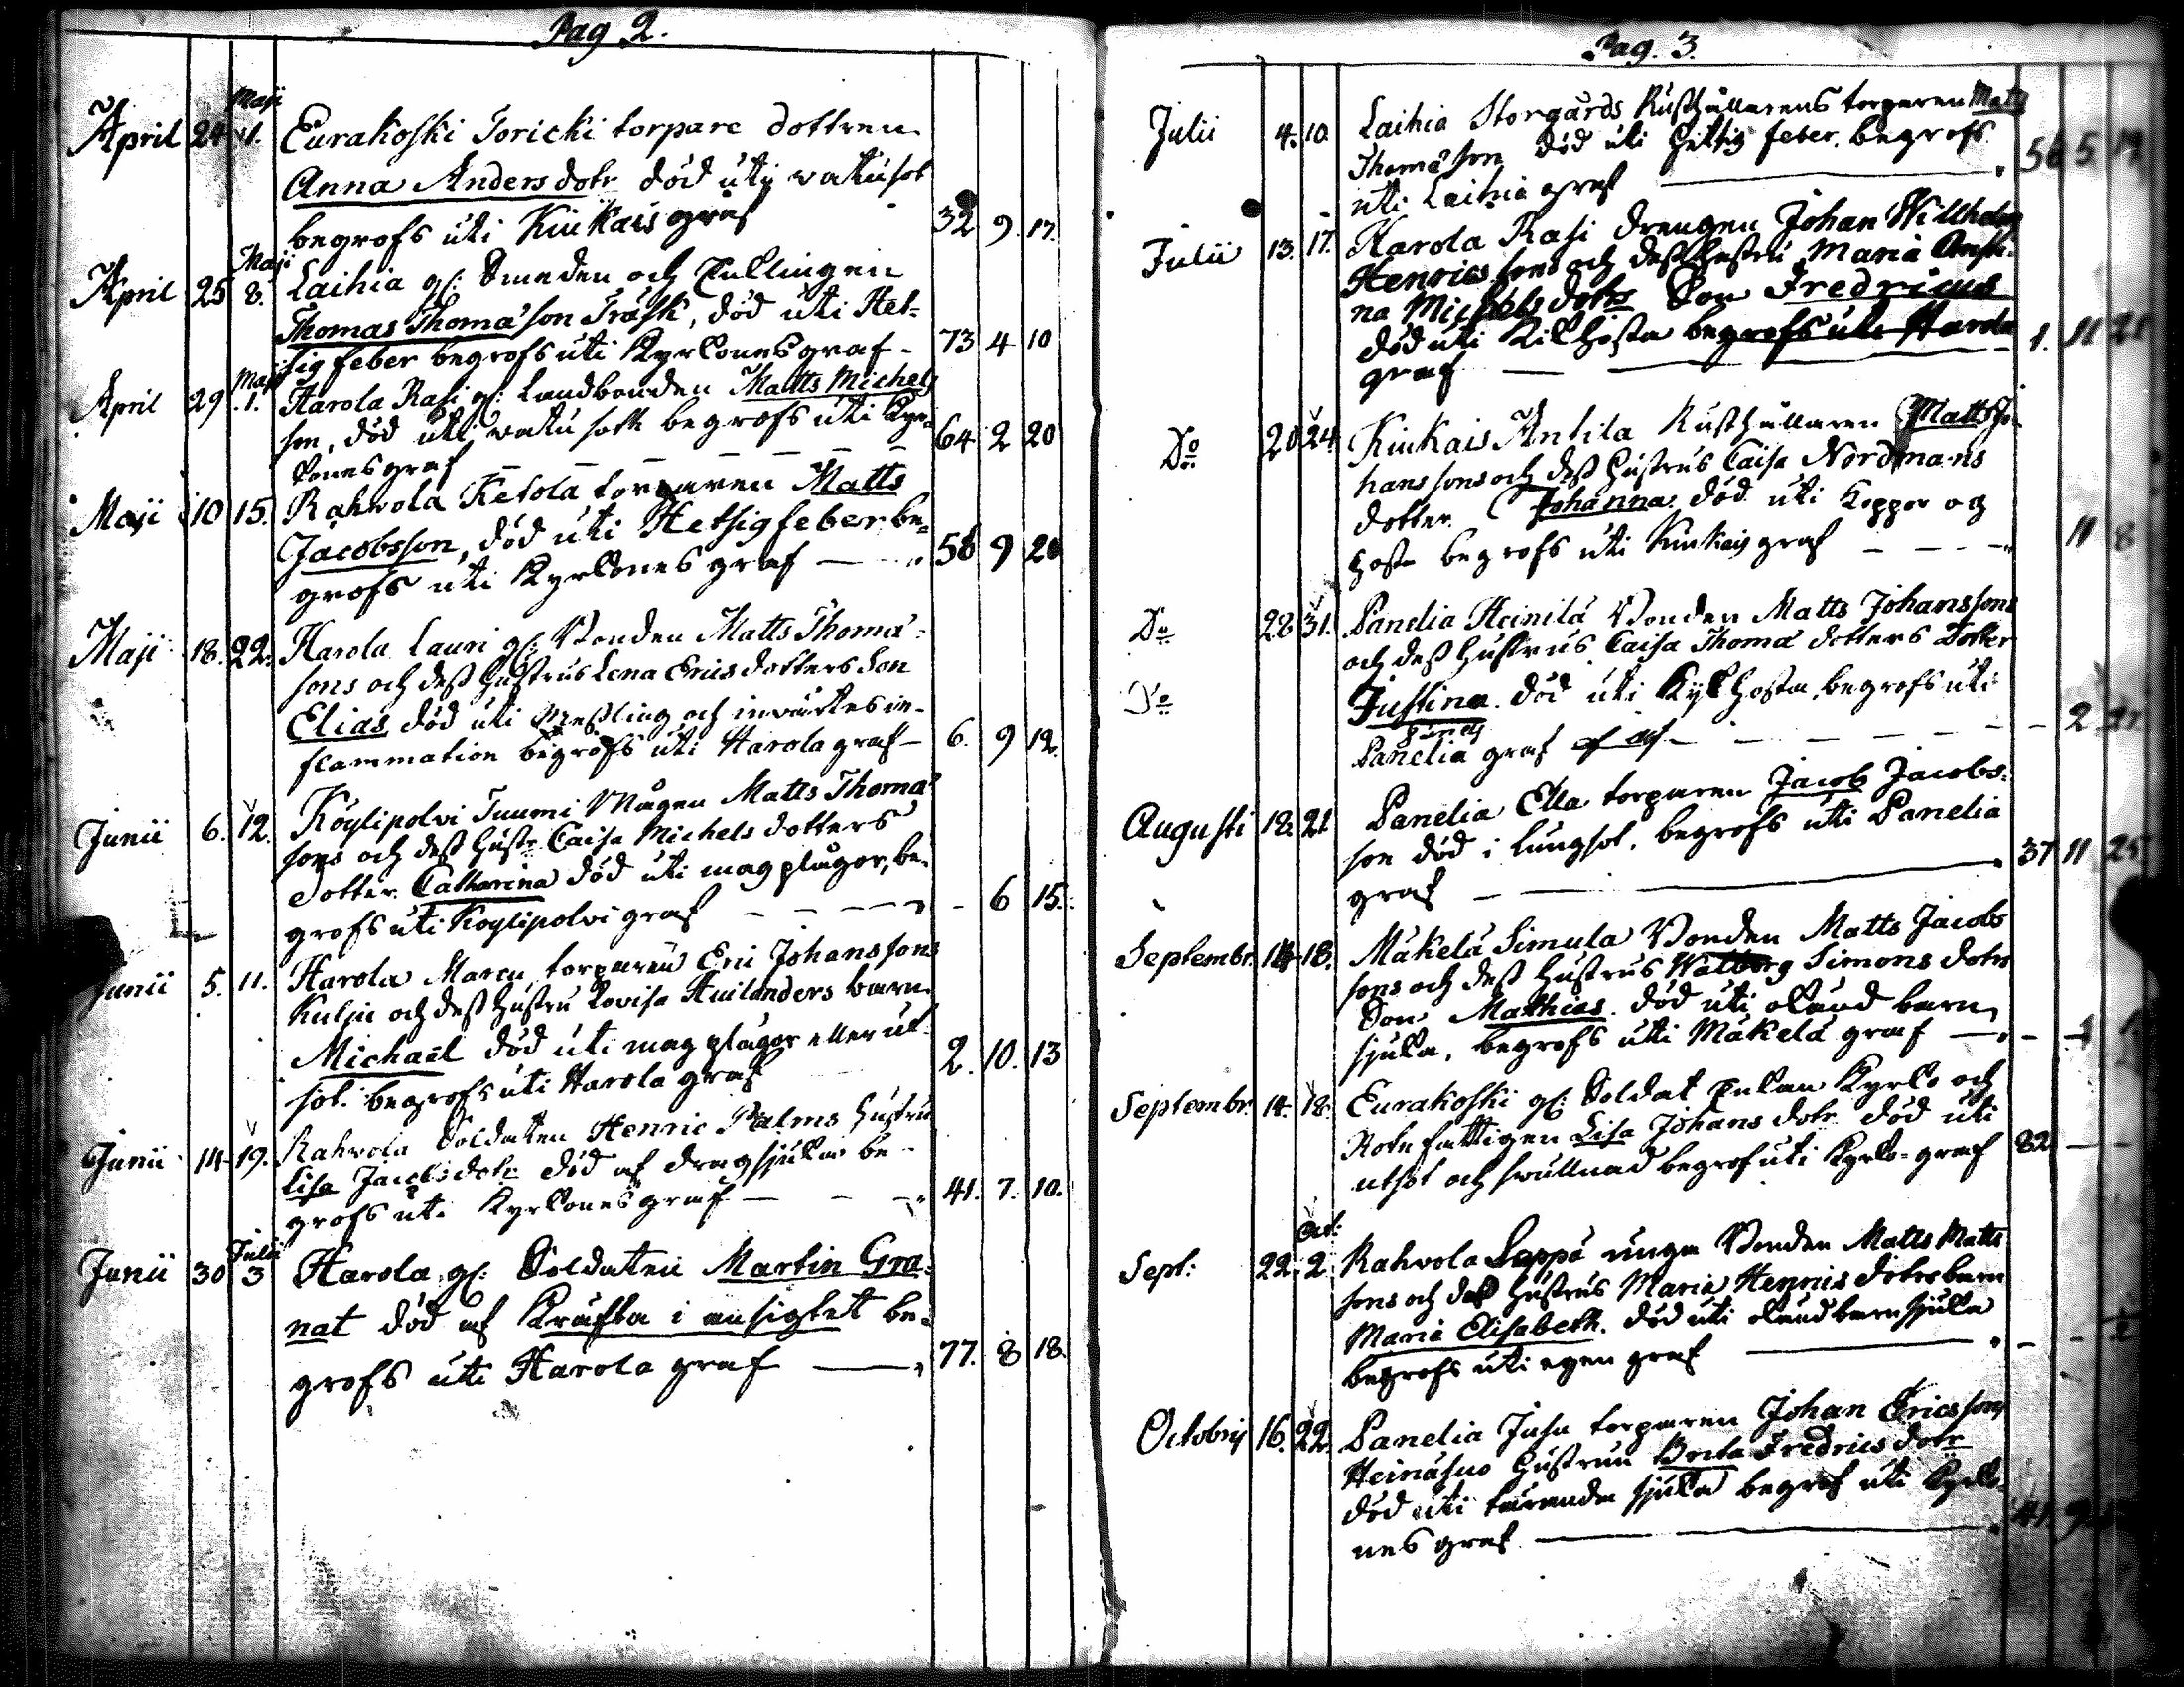 Pag 2.
Maji
April 24 1. Eurakoski Sorichi torpare dottren
Anna Anders dotr död uti vatusot
begrofs uti Kiukais graf 32 9. 17.
Maji
April 25 8. Laihia gl: Smeden och Inllingen
Thomas Thomason Träsk, död uti Het-
sig feber begrofs uti Kyrkones graf - 73 4 10
Maji
April 29 1. Harola Rasi gl: Landbonden Matts Michels
son, död uti vatu sott begrofs uti Kyr-
kones graf 64 2 20
Maji 10 15. Rahvola Ketola torparen Matts
Jacobsson, död uti Hetsig feber be-
grofs uti Kyrkones graf 58 9 20
Maji 18. 22. Harola Lauri gl: Bonden Matts Thoma-
sons och dess hustrus Lena Erics dotters Son
Elias död uti Messling och invärtes in-
flammation begrofs uti Harola graf 6. 9 12.
Junii 6. 12. Köylipolvi Tuumi Mågen Matts Thoma
sons och dess hustr Caisa Michels dotters
dotter Catharina död uti mag plågor, be-
grofs uti Köylipolvi graf - 6 15.
Junii 5. 11. Harola Marcu torparen Eric Johanssons
Kulju och dess hustru Lovisa Huilanders barn
Michaël död uti mag plågor eller ut-
sot. begrofs uti Harola graf 2. 10. 13
Junii 14 19. Rahvola Soldaten Henric Palms hustru
Lisa Jacobs dotr död af dragsjuka be-
grofs uti Kyrkones graf 41. 7. 10.
Julii
Junii 30 3 Harola gl: Soldaten Martin Gra-
nat död af Kräfta i ansigtet be-
grofs uti Harola graf 77. 8 18.
Pag. 3.
Julii 4. 10. Laihia Storgårds Rusthållarens torparen Matts
Thomason död uti hettig feber. begrofs
uti Laihia graf 56 5 14
Julii 13. 17. Harola Rasi drengen Johan Willhelm
Henrics sons och dess hustru Maria Christi-
na Michels dotrs Son Fredricus
död uti Kikhosta begrofs uti Harola
graf 1. 11 21
Do 20 24. Kiukais Antila Rusthållaren Matts Jo-
hans sons och dess hustrus Caisa Nordmans
dotter Johanna död uti Koppor og
hosta begrofs uti Kiukais graf 11 8
Do 28 31. Panelia Heinilä Bonden Matts Johanssons
och dess hustrus Caisa Thoma dotters Dotter
Do Justina död uti Kykhosta, begrofs uti
Panelia graf 2 21
Augusti 18. 21 Panelia Ella torparen Jacob Jacobs-
son död i lungsot. begrofs uti Panelia
graf 37 11 25
Septembr. 14 18. Mäkelä Simula Bonden Matts Jacobs
sons och dess hustrus Walborg Simons dotrs
Son Mathias död uti okänd barn
sjuka, begrofs uti Mäkelä graf
Septembr. 14. 18. Eurakoski gl: Soldat Enkan Kyrko och
Rote fattigen Lisa Johans dotr död uti
utsot och svullnad begrof uti Kyrko-graf 82
Oct:
Sept: 22. 2 Rahvola Seppä unga Bonden Matts Matts
sons och dess hustrus Maria Henrics dotrs barn
Maria Elisabeth. död uti okänd barnsjuka
begrofs uti egen graf
Octobris 16. 22. Panelia Jusa torparen Johan Ericssons
Heinäsuo hustrun Brita Fredrics dotr
död uti tärande sjuka begrof uti Kyrko-
nes graf 41 9